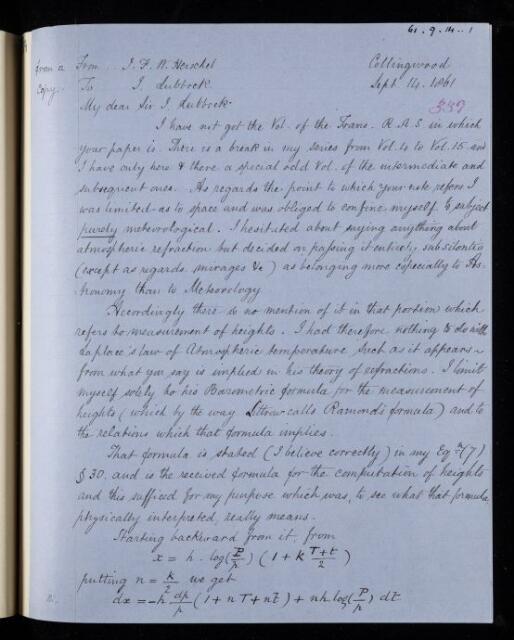 61.9.14.1
from a From. J. F. W. Herschel Collingwood
Copy. To J. Lubbock Sept. 14. 1861
339
My dear Sir J. Lubbock
I have not got the Vol. of the Trans. R.A.S. in which
your paper is. There is a break in my series from Vol. 4 to Vol. 15 and
I have only here & there a special odd Vol. of the intermediate and
subsequent ones. As regards the point to which your note refers I
was limited as to space and was obliged to confine myself to subject
purely meteorological. I hesitated about saying anything about
atmospheric refraction but decided on passing it entirely sub silentio
(except as regards mirages &c) as belonging more especially to As-
tronomy than to Meteorology
Accordingly there is no mention of it in that portion which
refers to measurement of heights. I had therefore nothing to do with
Laplace's law of Atmospheric temperature such as it appears
from what you say is implied in his theory of refractions. I limit
myself solely to his Barometric formula for the measurement of
heights (which by the way Littrow calls Ramond's formula) and to
the relations which that formula implies.
That formula is stated (I believe correctly) in my Eqn (7)
§ 30. and is the received formula for the computation of heights
and this sufficed for my purpose which was, to see what that formula,
physically interpreted, really means.
Starting backward from it, from
x = h · log(P/p) (1 + k T+t/2)
putting n = k/2 we get
dx = -h dp/p (1 + nT + nt) + nh log(P/p) dt